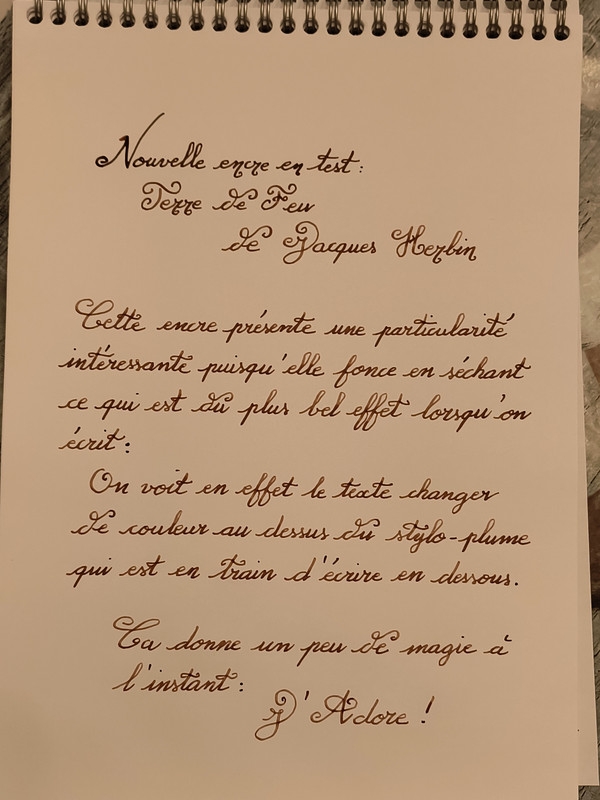 Nouvelle encre en test:
Terre de Feu
de Jacques Herbin
Cette encre présente une particularité
intéressante puisqu'elle fonce en séchant
ce qui est du plus bel effet lorsqu'on
écrit:
On voit en effet le texte changer
de couleur au dessus du stylo-plume
qui est en train d'écrire en dessous.
Ca donne un peu de magie à
l'instant:
J'Adore !